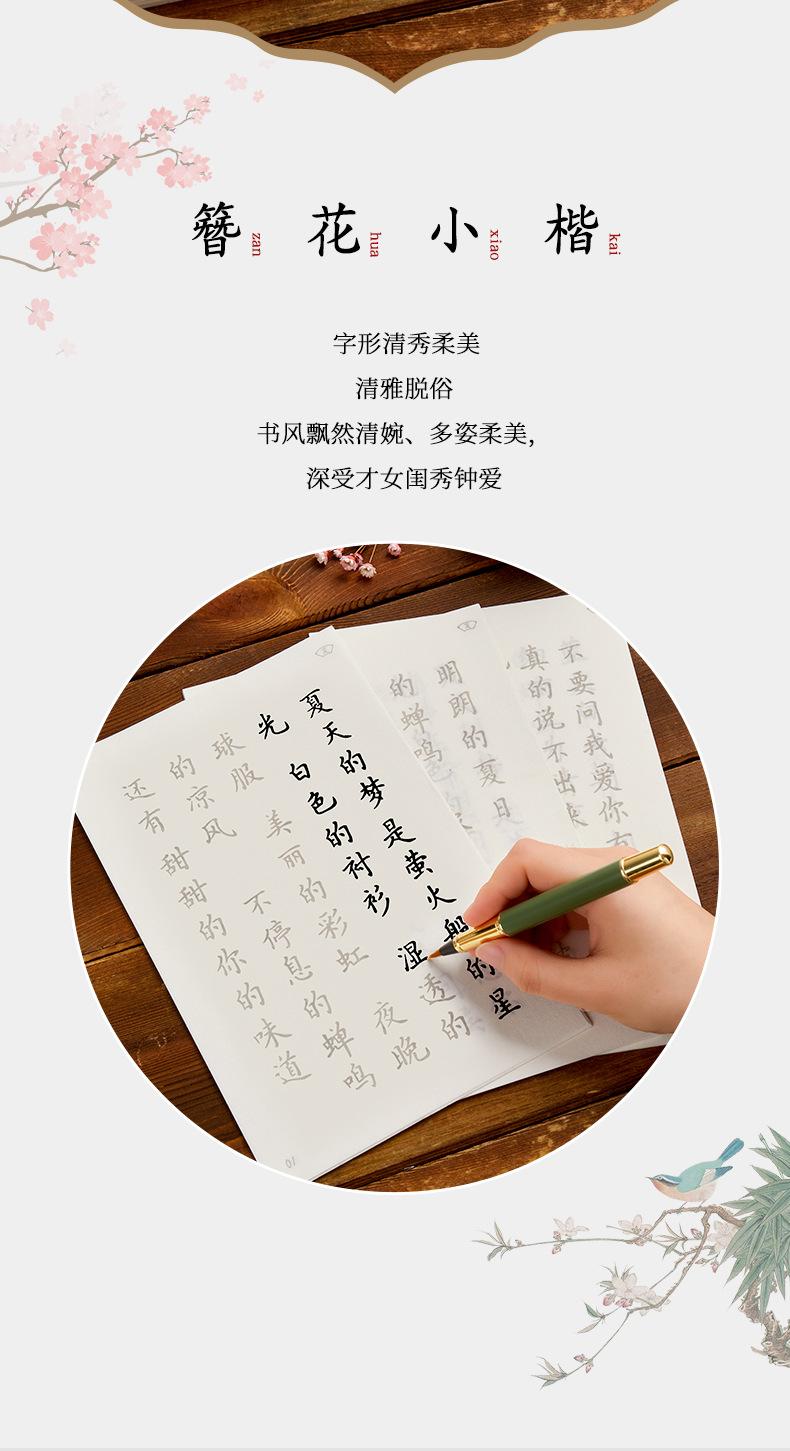 簪花小楷
zan hua xiao kai
字形清秀柔美
清雅脱俗
书风飘然清婉、多姿柔美,
深受才女闺秀钟爱
夏天的梦是萤火船的星
光 白色的衬衫 湿透的
球服 美丽的彩虹 夜晚
的凉风 不停息的蝉鸣
还有甜甜的你的味道
01
明朗的夏日
的蝉鸣
不要问我爱你有
真的说不出来